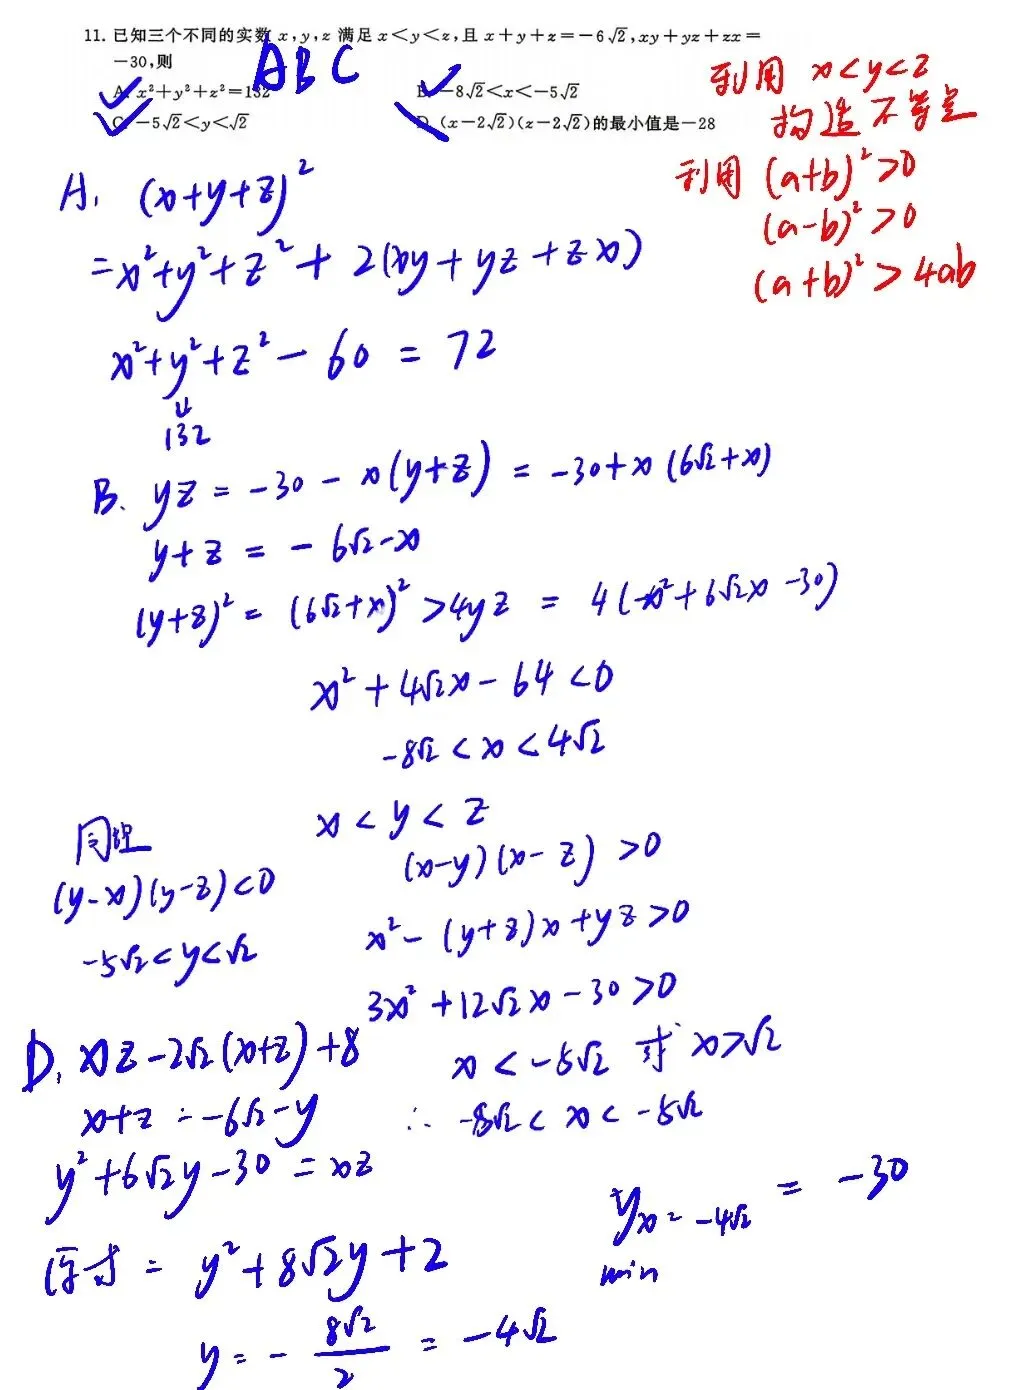 11. 已知三个不同的实数 x,y,z 满足 x<y<z,且 x+y+z=-6√2,xy+yz+zx=
-30,则
ABC
A. x²+y²+z²=132
B. -8√2<x<-5√2
C. -5√2<y<√2
D. (x-2√2)(z-2√2)的最小值是-28
利用 x<y<z
构造不等式
利用 (a+b)²>0
(a-b)²>0
(a+b)²>4ab
A. (x+y+z)²
=x²+y²+z²+2(xy+yz+zx)
x²+y²+z²-60=72
↓
132
B. yz=-30-x(y+z)=-30+x(6√2+x)
y+z=-6√2-x
(y+z)²=(6√2+x)²>4yz=4(x²+6√2x-30)
x²+4√2x-64<0
-8√2<x<4√2
x<y<z
(x-y)(x-z)>0
x²-(y+z)x+yz>0
3x²+12√2x-30>0
x<-5√2 或 x>√2
∴ -8√2<x<-5√2
同理
(y-x)(y-z)<0
-5√2<y<√2
D. xz-2√2(x+z)+8
x+z=-6√2-y
y²+6√2y-30=xz
原式=y²+8√2y+2
y=-8√2/2=-4√2
y x=-4√2 =-30
min